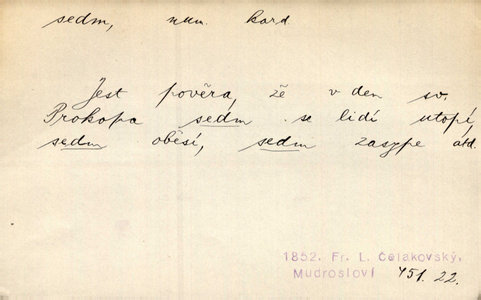 sedm, num. kard.
Jest pověra, že v den sv.
Prokopa sedm se lidí utopí,
sedm oběsí, sedm zasype atd.
1852. Fr. L. Čelakovský,
Mudrosloví 451. 22.